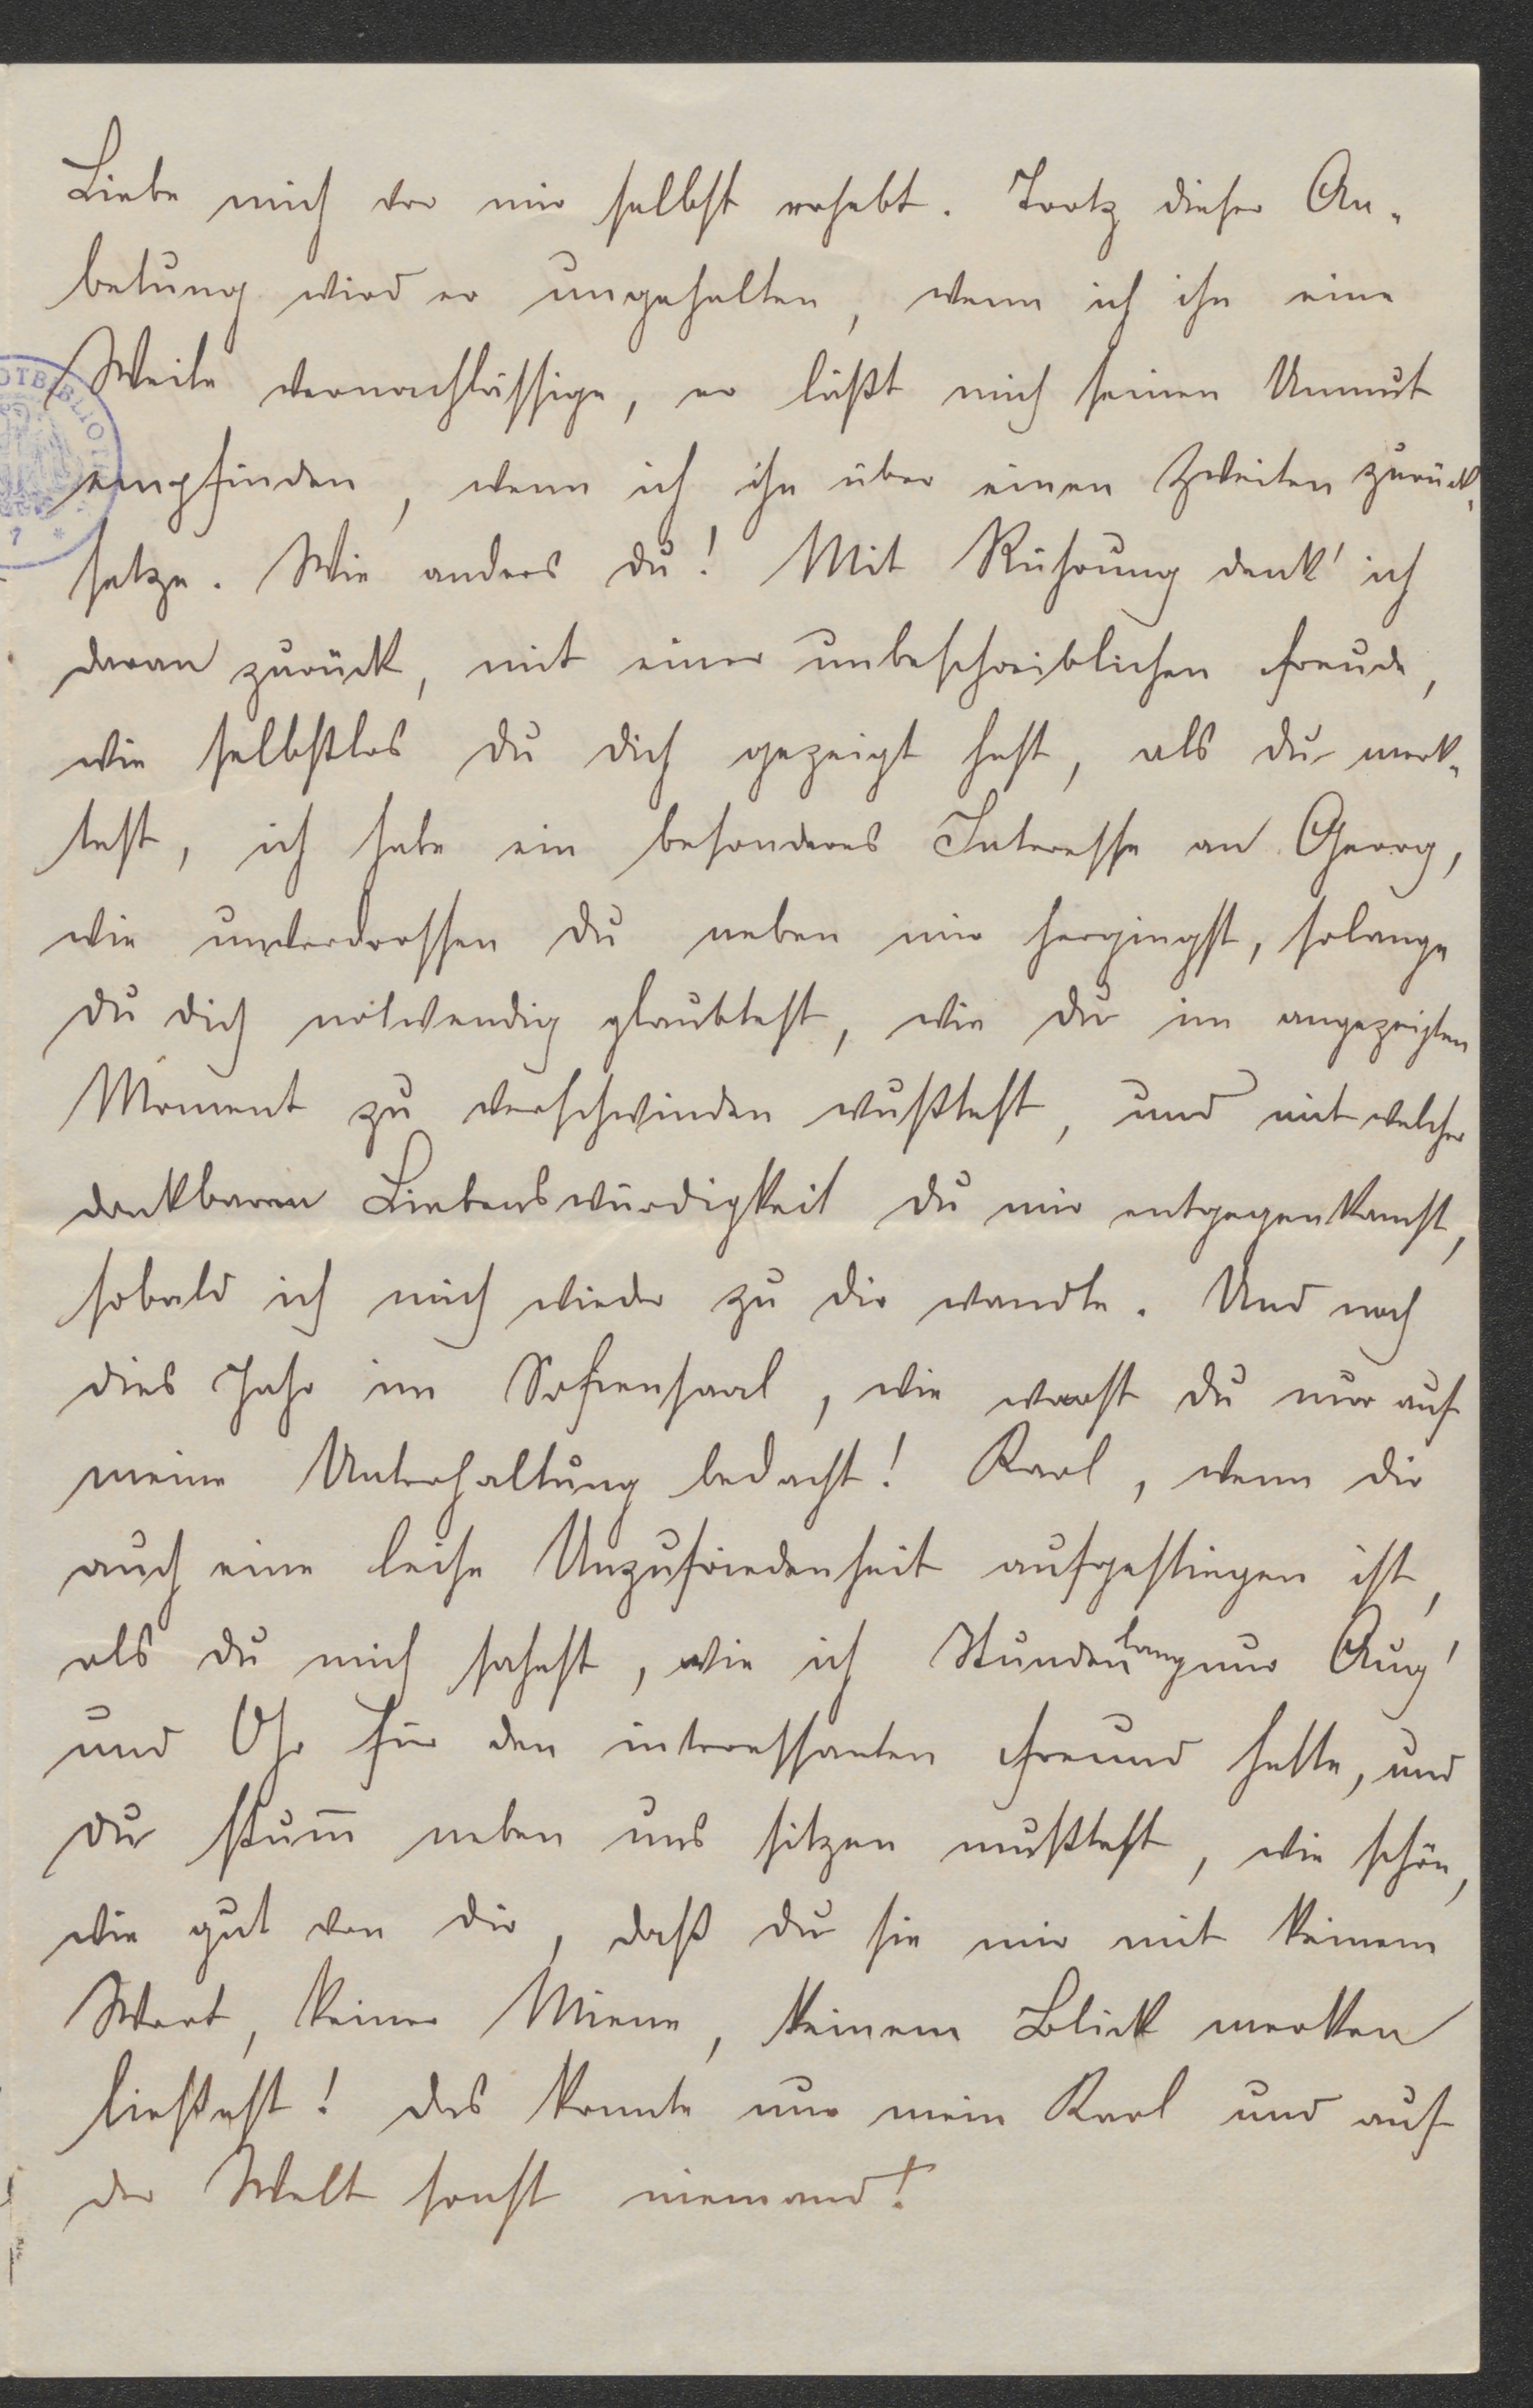 Liebe mich vor mir selbst erhebt. Trotz dieser An-
betung wird er ungehalten, wenn ich ihn eine
Weile vernachlässige, er läßt mich seinen Unmut
empfinden, wenn ich ihn über einen Zweiten zurück-
setze. Wie anders du! Mit Rührung denk' ich
daran zurück, mit einer unbeschreiblichen Freude,
wie selbstlos du dich gezeigt hast, als du merk-
test, ich habe ein besonderes Interesse an Georg,
wie unverdrossen du neben mir hergingst, solange
du dich notwendig glaubtest, wie du im angezeigten
Moment zu verschwinden wußtest, und mit welcher
dankbaren Liebenswürdigkeit du mir entgegenkamst,
sobald ich mich wieder zu dir wandte. Und noch
dies Jahr im Sofiensaal, wie warst du nur auf
meine Unterhaltung bedacht! Karl, wenn dir
auch eine leise Unzufriedenheit aufgestiegen ist,
als du mich sahest, wie ich Stundenlang nur Aug'
und Ohr für den interessanten Freund hatte, und
du stum̅ neben uns sitzen mußtest, wie schön,
wie gut von dir, daß du sie mir mit keinem
Wort, keiner Miene, keinem Blick merken
ließest! Das konnte nur mein Karl und auf
der Welt sonst niemand!